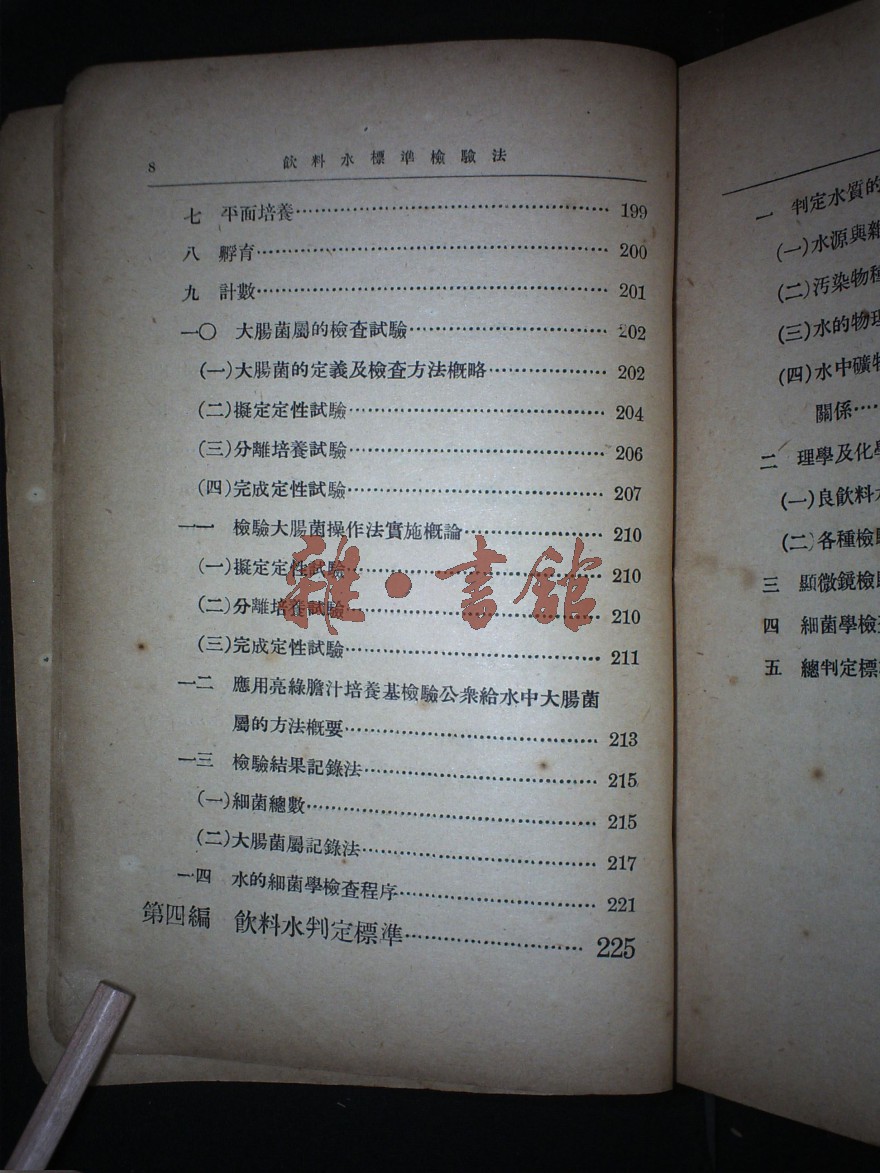 8 飲料水標準檢驗法
七 平面培養 199
八 孵育 200
九 計數 201
一〇 大腸菌屬的檢查試驗 202
(一)大腸菌的定義及檢查方法概略 202
(二)擬定定性試驗 204
(三)分離培養試驗 206
(四)完成定性試驗 207
一一 檢驗大腸菌操作法實施概論 210
(一)擬定定性試驗 210
(二)分離培養試驗 210
(三)完成定性試驗 211
一二 應用亮綠膽汁培養基檢驗公衆給水中大腸菌
屬的方法概要 213
一三 檢驗結果記錄法 215
(一)細菌總數 215
(二)大腸菌屬記錄法 217
一四 水的細菌學檢查程序 221
第四編 飲料水判定標準 225
雜·書館
一 判定水質的
(一)水源與
(二)汚染物種
(三)水的物理
(四)水中礦物
關係
二 理學及化學
(一)良飲料水
(二)各種檢
三 顯微鏡檢
四 細菌學檢
五 總判定標